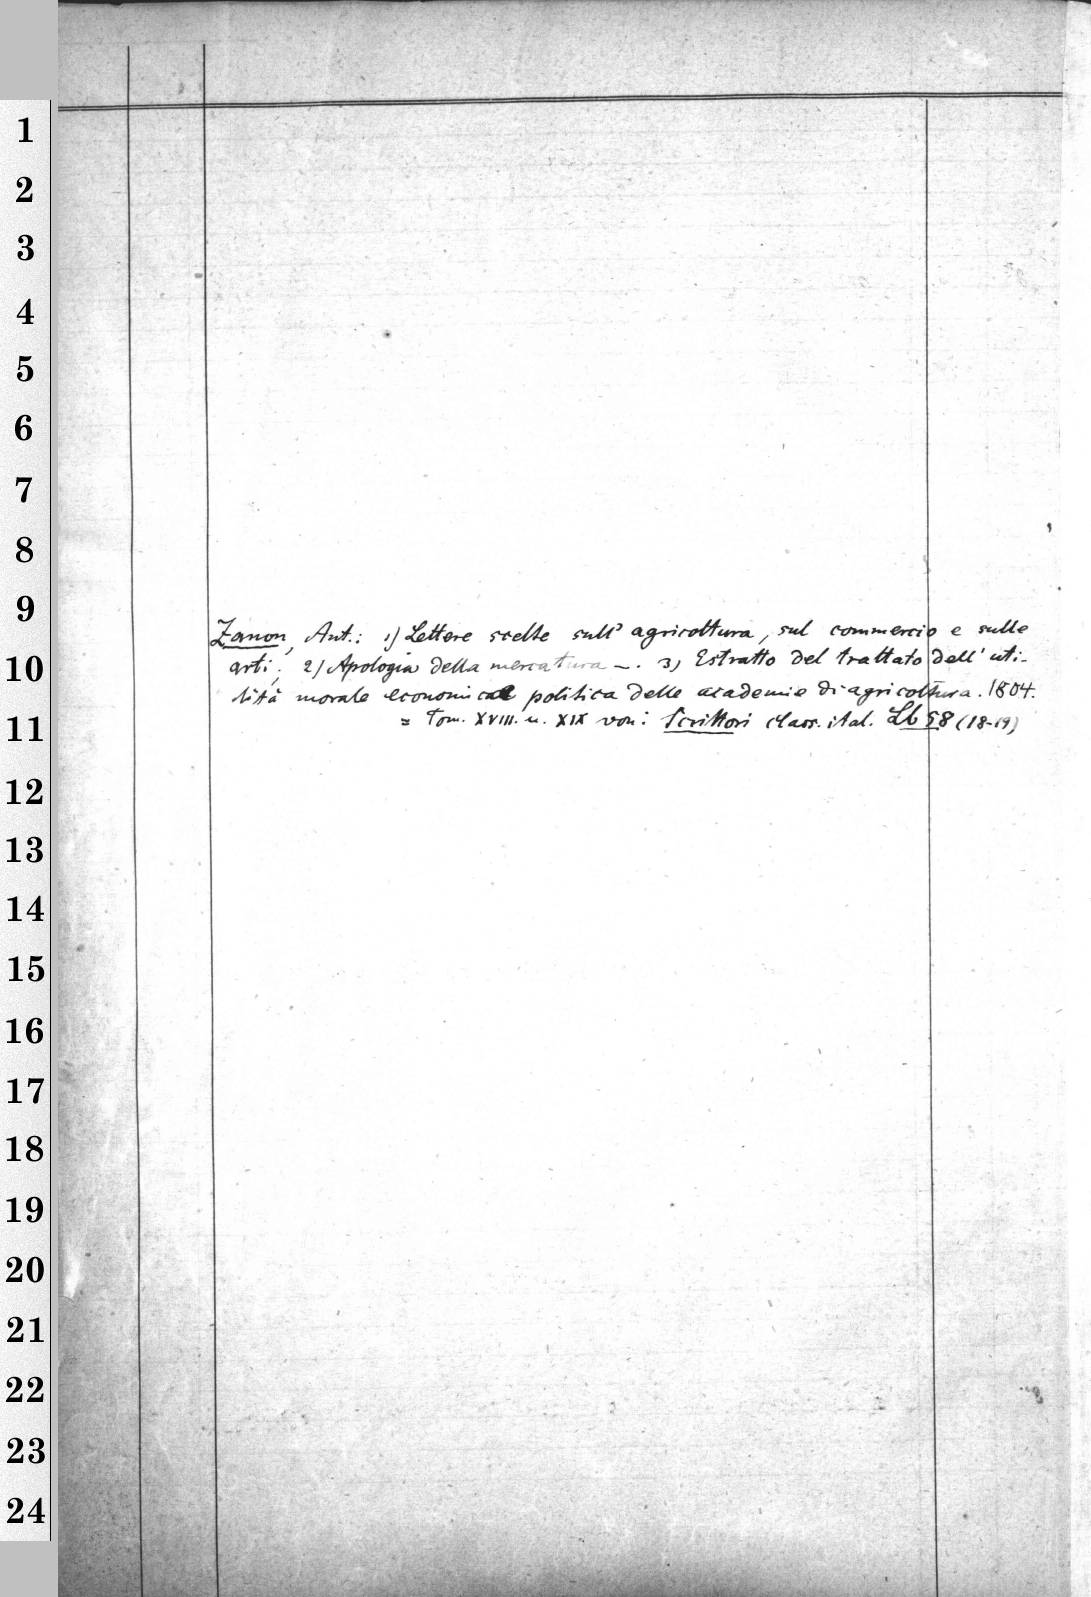 1
2
3
4
5
6
7
8
9
Zanon, Ant.: 1) Lettere scelte sull' agricoltura, sul commercio e sulle
10
arti; 2) Apologia della mercatura —. 3) Estratto del trattato dell' uti-
lità morale economica e politica delle academie di agricoltura. 1804.
11
= Tom. XVIII. u. XIX von: Scrittori class. ital. Lb 58 (18-19)
12
13
14
15
16
17
18
19
20
21
22
23
24